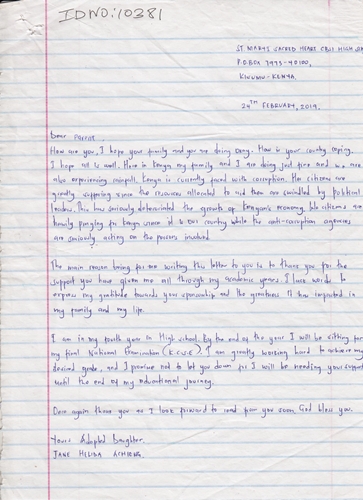 IDNO:10381
ST MARYS SACRED HEART GIRLS HIGH
P.O BOX 7493-40100,
KISUMU-KENYA.
20TH FEBRUARY, 2019.
Dear Parent,
How are you, I hope your family and you are doing okay. How is your country coping.
I hope all is well. Here in Kenya my family and I are doing just fine and we are
also experiencing rainfall. Kenya is currently faced with corruption. The citizens are
greatly suffering since the resources allocated to aid them are swindled by political
leaders. This has seriously deteriorated the growth of Kenya's economy. We citizens are
praying for Kenya since it is our country while the anti-corruption agencies
are seriously acting on the persons involved.
The main reason being for me writing this letter to you is to thank you for the
support you have given me all through my academic years. I lack words to
express my gratitude towards your sponsorship and the greatness it has impacted in
my family and my life.
I am in my fourth year in High school. By the end of the year I will be sitting for
my final National Examination (K.C.S.E). I am greatly working hard to achieve my
desired grade, and I promise not to let you down for I will be needing your support
until the end of my educational journey.
Once again thank you as I look forward to read from you soon. God bless you.
Yours Adopted Daughter.
JANE